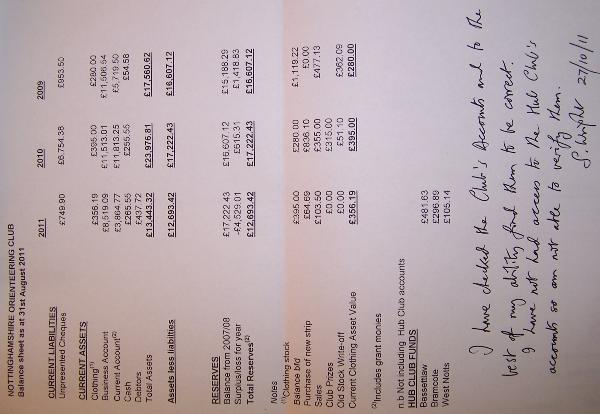 NOTTINGHAMSHIRE ORIENTEERING CLUB
Balance sheet as at 31st August 2011
2011 2010 2009
CURRENT LIABILITIES
Unpresented Cheques £749.90 £6,754.38 £953.50
CURRENT ASSETS
Clothing(1) £356.19 £395.00 £280.00
Business Account £8,519.09 £11,513.01 £11,506.54
Current Account(2) £3,864.77 £11,813.25 £5,719.50
Cash £265.55 £255.55 £54.58
Debtors £437.72
Total Assets £13,443.32 £23,976.81 £17,560.62
Assets less liabilities £12,693.42 £17,222.43 £16,607.12
RESERVES
Balance from 2007/08 £17,222.43 £16,607.12 £15,188.29
Surplus/loss for year -£4,529.01 £615.31 £1,418.83
Total Reserves(2) £12,693.42 £17,222.43 £16,607.12
Notes
(1)Clothing stock
Balance bfd £395.00 £280.00 £1,119.22
Purchase of new strip £64.69 £836.10 £0.00
Sales £103.50 £355.00 £477.13
Club Prizes £0.00 £315.00
Old Stock Write-off £0.00 £51.10 £362.09
Current Clothing Asset Value £356.19 £395.00 £280.00
(2)Includes grant monies
n.b Not including Hub Club accounts
HUB CLUB FUNDS
Bassetlaw £481.63
Bramcote £296.89
West Notts £105.14
I have checked the Club's Accounts and to the
best of my ability find them to be correct.
I have not had access to the Hub Club's
accounts so am not able to verify them.
S. Wright 27/10/11